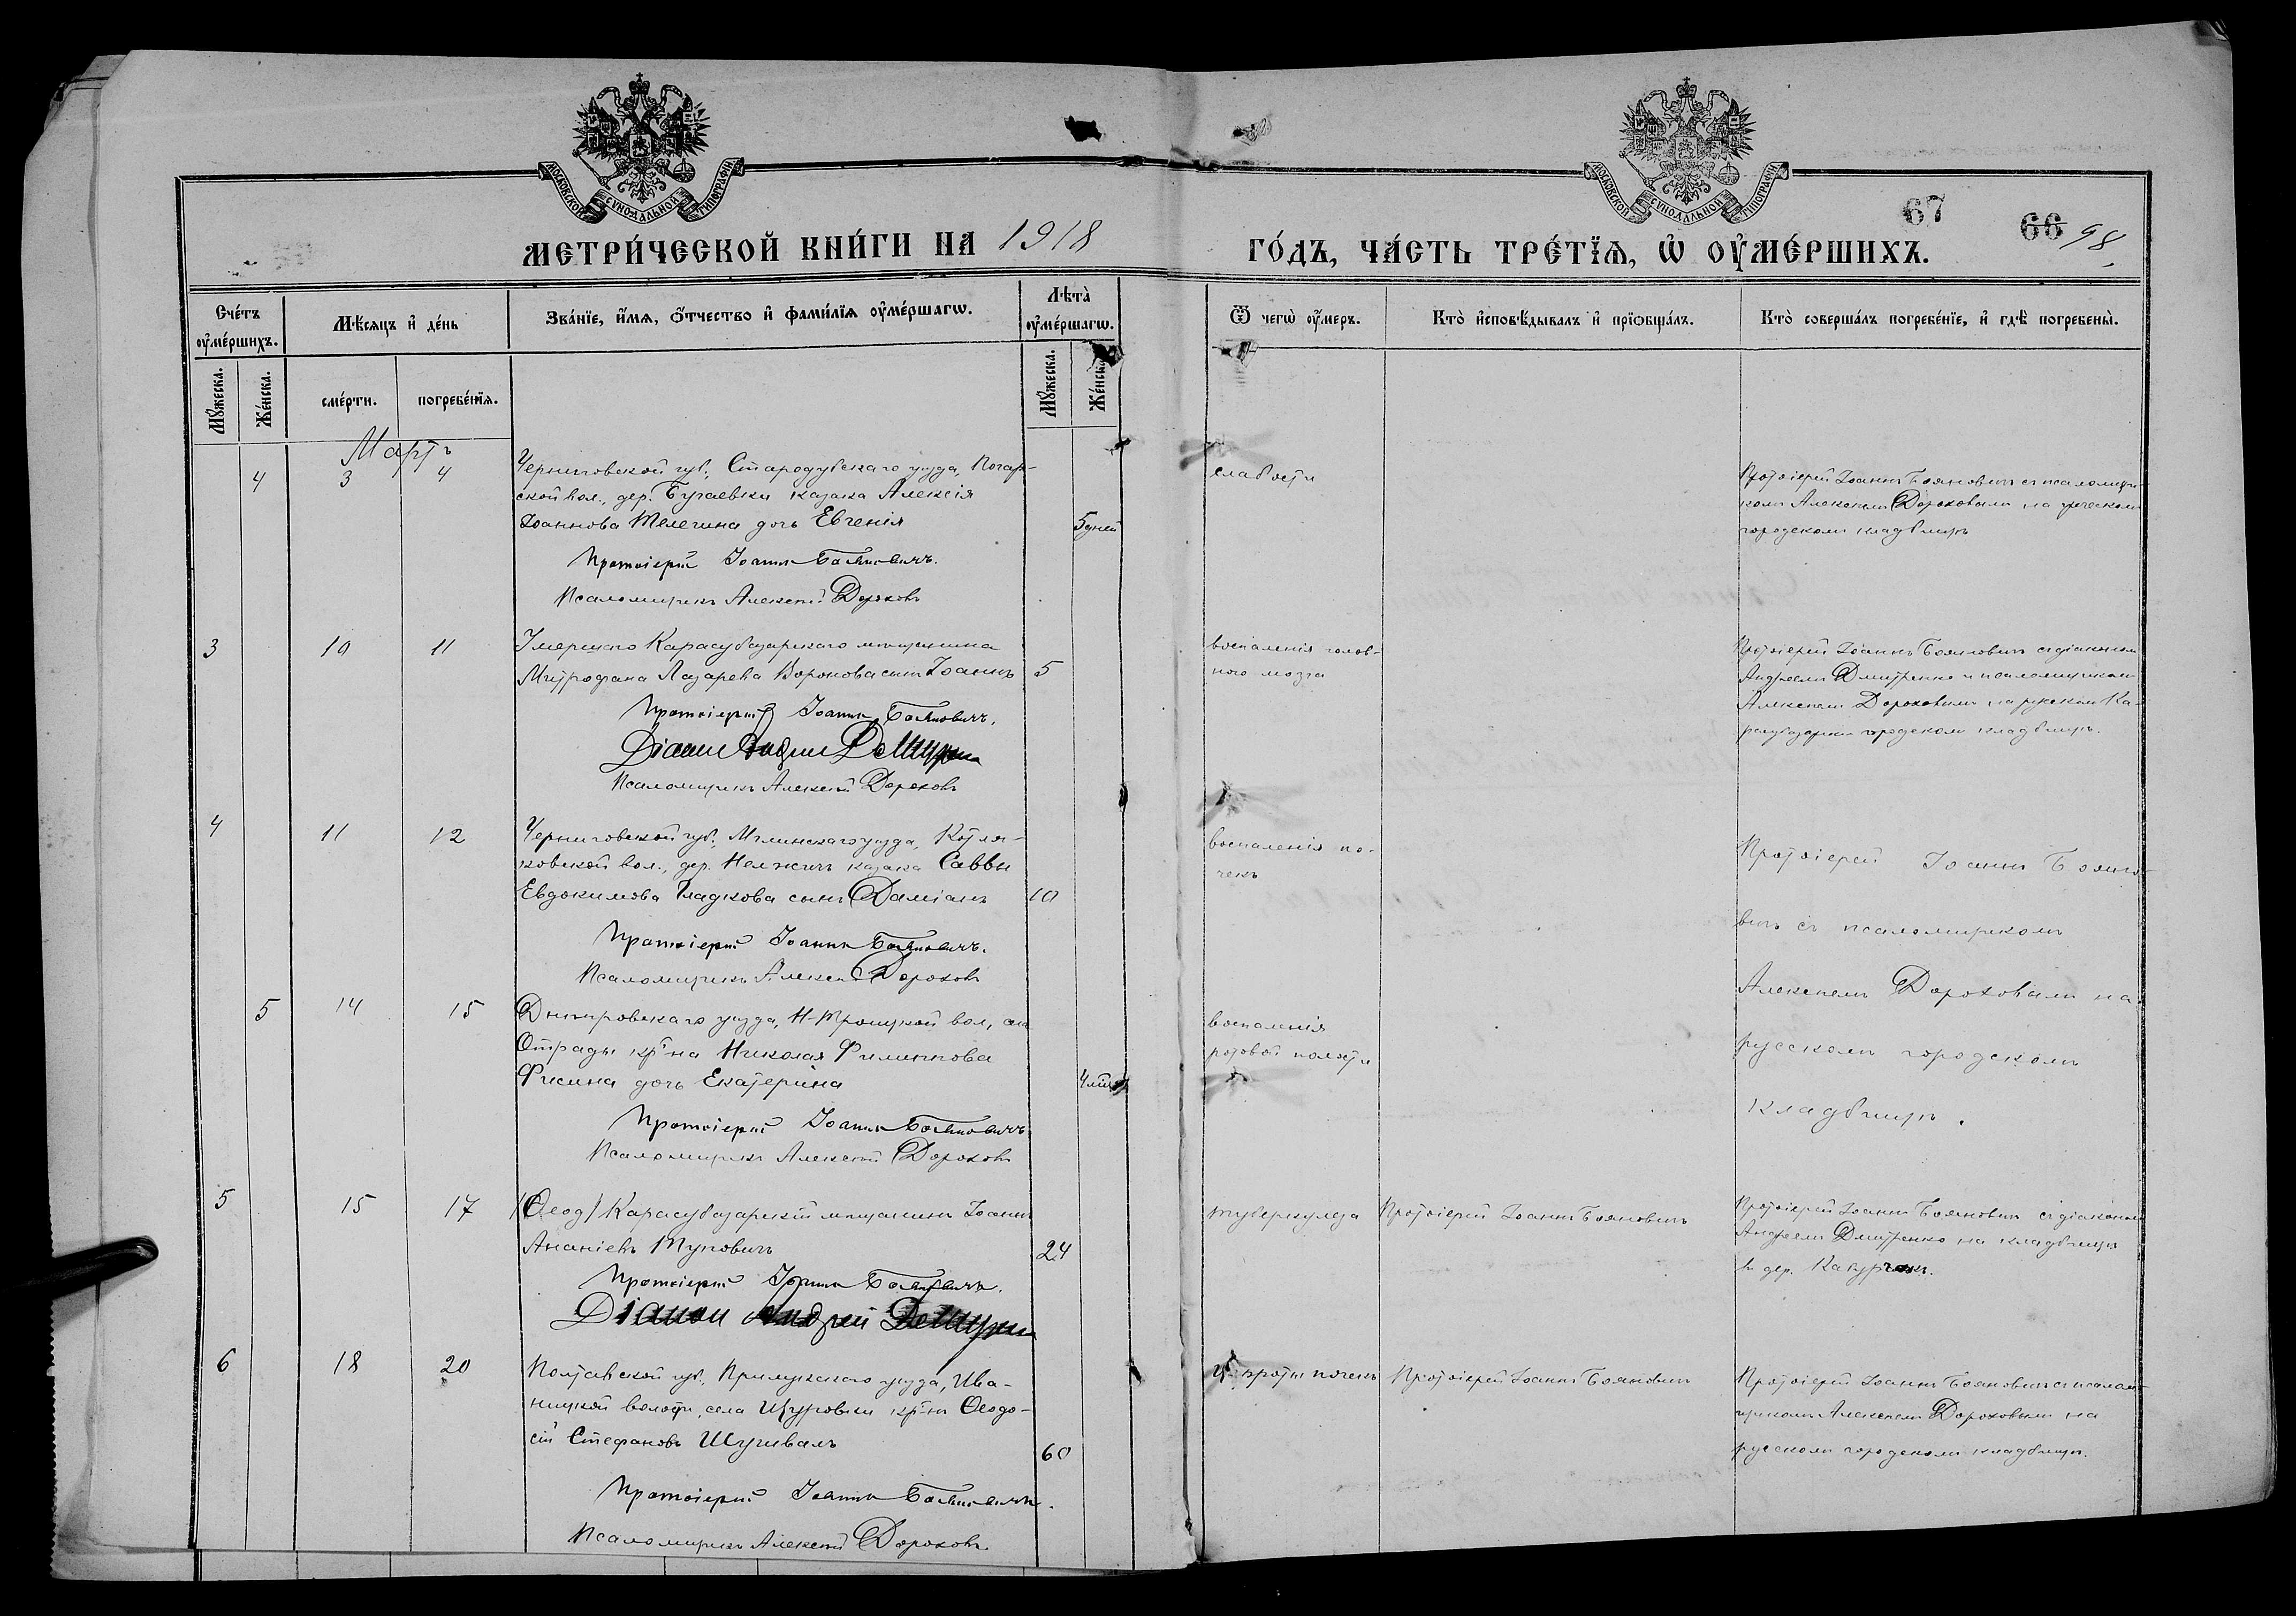 МОСКОВСКОЙ СУНОДАЛЬНОЙ ТИПОГРАФІИ
МОСКОВСКОЙ СУНОДАЛЬНОЙ ТИПОГРАФІИ
67
66 98
МЕТРИ́ЧЕСКОЙ КНИ́ГИ НА 1918
ГО́ДЪ, ЧА́СТЬ ТРЕ́ТЇѦ, Ѡ҆ ОУ҆МЕ́РШИХЪ.
Сче́тъ
оу҆ме́ршихъ.
Мѣ́сяцъ и҆ де́нь
Зва́нїе, и҆́мѧ, ѻ҆́тчество и҆ фами́лїѧ оу҆ме́ршагѡ.
Лѣта̀
оу҆ме́ршагѡ.
Ѿ чегѡ̀ оу҆́меръ.
Кто̀ и҆сповѣ́дывалъ и҆ прїѻбща́лъ.
Кто̀ соверша́лъ погребе́нїе, и҆ гдѣ̀ погребены̀.
Мꙋ́жеска.
Же́нска.
сме́рти.
погребе́нїѧ.
Мꙋ́жеска.
Же́нска.
Мартъ
4 3 4
Черниговской губ., Стародубскаго уѣзда, Погар-
ской вол., дер. Бугаевки казака Алексія
Іоаннова Телегина дочь Евгенія
5 дней
Протоіерей Іоаннъ Бояновичъ.
Псаломщикъ Алексѣй Дороховъ
слабости
Протоіерей Іоаннъ Бояновичъ съ псаломщи-
комъ Алексѣемъ Дороховымъ на русскомъ
городскомъ кладбищѣ
3 10 11
Умершаго Карасубазарскаго мѣщанина
Митрофана Лазарева Воронова сынъ Іоаннъ
5
Протоіерей Іоаннъ Бояновичъ.
Діаконъ Андрей Дмитренко
Псаломщикъ Алексѣй Дороховъ
воспаленія голов-
ного мозга
Протоіерей Іоаннъ Бояновичъ съ діакономъ
Андреемъ Дмитренко и псаломщикомъ
Алексѣемъ Дороховымъ на русскомъ Ка-
расубазарскомъ городскомъ кладбищѣ.
4 11 12
Черниговской губ., Мглинскаго уѣзда, Котля-
ковской вол., дер. Нежичъ казака Саввы
Евдокимова Гладкова сынъ Даміанъ
10
Протоіерей Іоаннъ Бояновичъ.
Псаломщикъ Алексѣй Дороховъ
воспаленія по-
чекъ
Протоіерей Іоаннъ Бояно-
вичъ съ псаломщикомъ
Алексѣемъ Дороховымъ на
русскомъ городскомъ
кладбищѣ.
5 14 15
Днѣпровскаго уѣзда, Н-Троицкой вол., сл.
Отрады кр-на Николая Филиппова
Фисина дочь Екатерина
4 мѣс
Протоіерей Іоаннъ Бояновичъ.
Псаломщикъ Алексѣй Дороховъ
воспаленія
ротовой полости
5 15 17
/Ѳеод/ Карасубазарскій мѣщанинъ Іоаннъ
Ананіевъ Туповичъ
24
Протоіерей Іоаннъ Бояновичъ.
Діаконъ Андрей Дмитренко
туберкулеза
Протоіерей Іоаннъ Бояновичъ
Протоіерей Іоаннъ Бояновичъ съ діакономъ
Андреемъ Дмитренко на кладбищѣ
въ дер.
6 18 20
Полтавской губ., Прилукскаго уѣзда, Ива-
ницкой волости, села Щуровки кр-нъ Ѳеодо-
сій Стефановъ
60
Протоіерей Іоаннъ Бояновичъ.
Псаломщикъ Алексѣй Дороховъ.
почекъ
Протоіерей Іоаннъ Бояновичъ
Протоіерей Іоаннъ Бояновичъ съ псалом-
щикомъ Алексѣемъ Дороховымъ на
русскомъ городскомъ кладбищѣ.